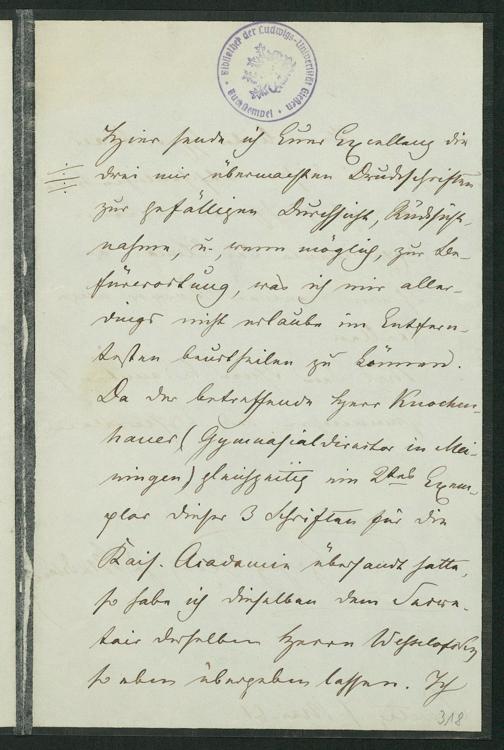 Bibliothek der Ludwigs-Universität Gießen
Hier sende ich Euer Excellenz die
drei mir übermachten Druckschriften
zur gefälligen Durchsicht, Rücksicht-
nahme, u., wenn möglich, zur Be-
fürwortung, was ich mir aller-
dings nicht erlaube im Entfern-
testen beurtheilen zu können.
Da der betreffende Herr Knochen-
hauer (Gymnasialdirector in Mei-
ningen) gleichzeitig ein 2tes Exem-
plar dieser 3 Schriften für die
Kais. Academie übersandt hatte,
so habe ich dieselben dem Secre-
tair derselben Herrn Wesselofsky
so eben übergeben lassen. Ich
318